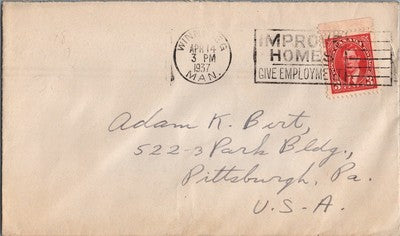 WINNIPEG
APR 14
3 PM
1937
MAN.
IMPROVE
HOMES
GIVE EMPLOYME
3 3
Adam K. Bert,
522-3 Park Bldg.,
Pittsburgh, Pa.
U.S.A.